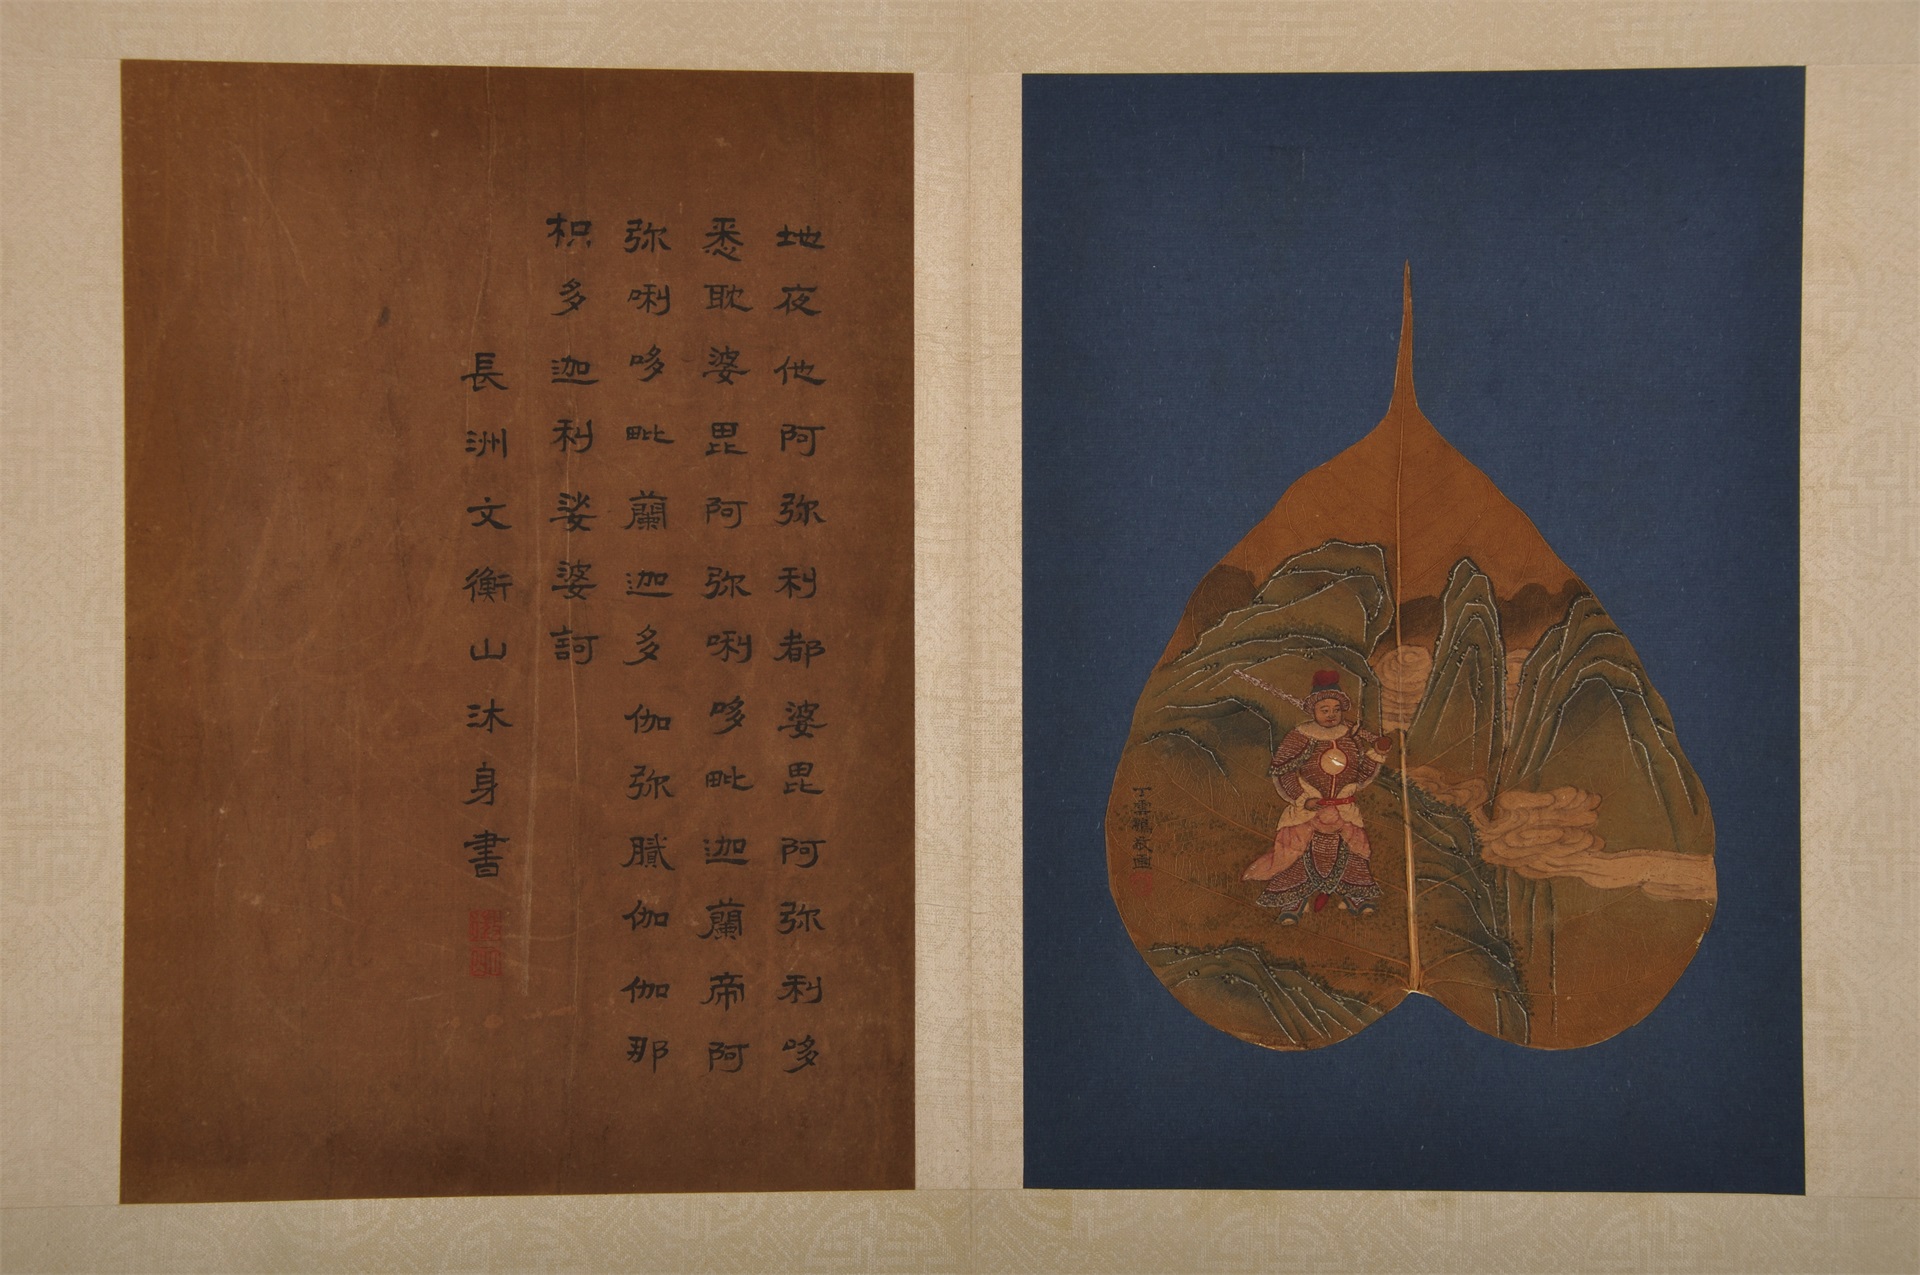 丁雲鵬敬畫
地夜他阿弥利都婆毘阿弥利哆
悉耽婆毘阿弥唎哆毗迦蘭帝阿
弥唎哆毗蘭迦多伽弥膩伽伽那
枳多迦利娑婆訶
長洲文衡山沐身書